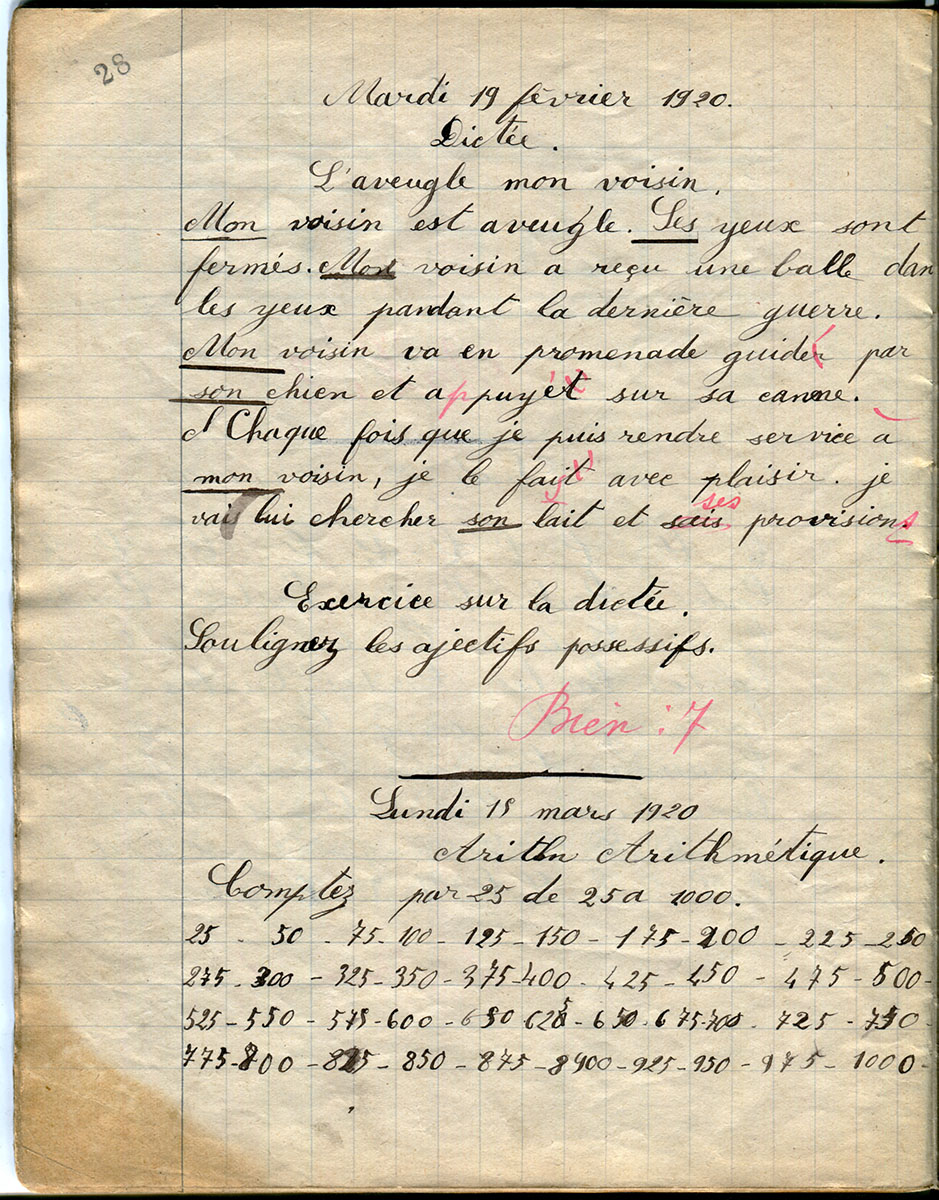 28
Mardi 19 février 1920.
Dictée.
L'aveugle mon voisin.
Mon voisin est aveugle. Ses yeux sont
fermés. Mon voisin a reçu une balle dan
les yeux pandant la dernière guerre.
Mon voisin va en promenade guider par
son chien et appuyét sur sa canne.
Chaque fois que je puis rendre service à
mon voisin, je le fait avec plaisir. je
ses
vais lui chercher son lait et sais provisions
Exercice sur la dictée.
Soulignez les ajectifs possessifs.
Bien : 7
Lundi 15 mars 1920
Arithn Arithmétique.
Comptez par 25 de 25 a 1000.
25 - 50 - 75 - 100 - 125 - 150 - 175 - 200 - 225 - 250
275 - 300 - 325 - 350 - 375 - 400 - 425 - 450 - 475 - 500 -
525 - 550 - 575 - 600 - 625 - 650 - 675 - 700 - 725 - 750 -
775 - 800 - 825 - 850 - 875 - 900 - 925 - 950 - 975 - 1000 -